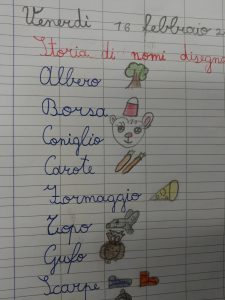 Venerdì 16 febbraio 2
Storia di nomi disegno
Albero
Borsa
Coniglio
Carote
Formaggio
Topo
Gufo
Scarpe